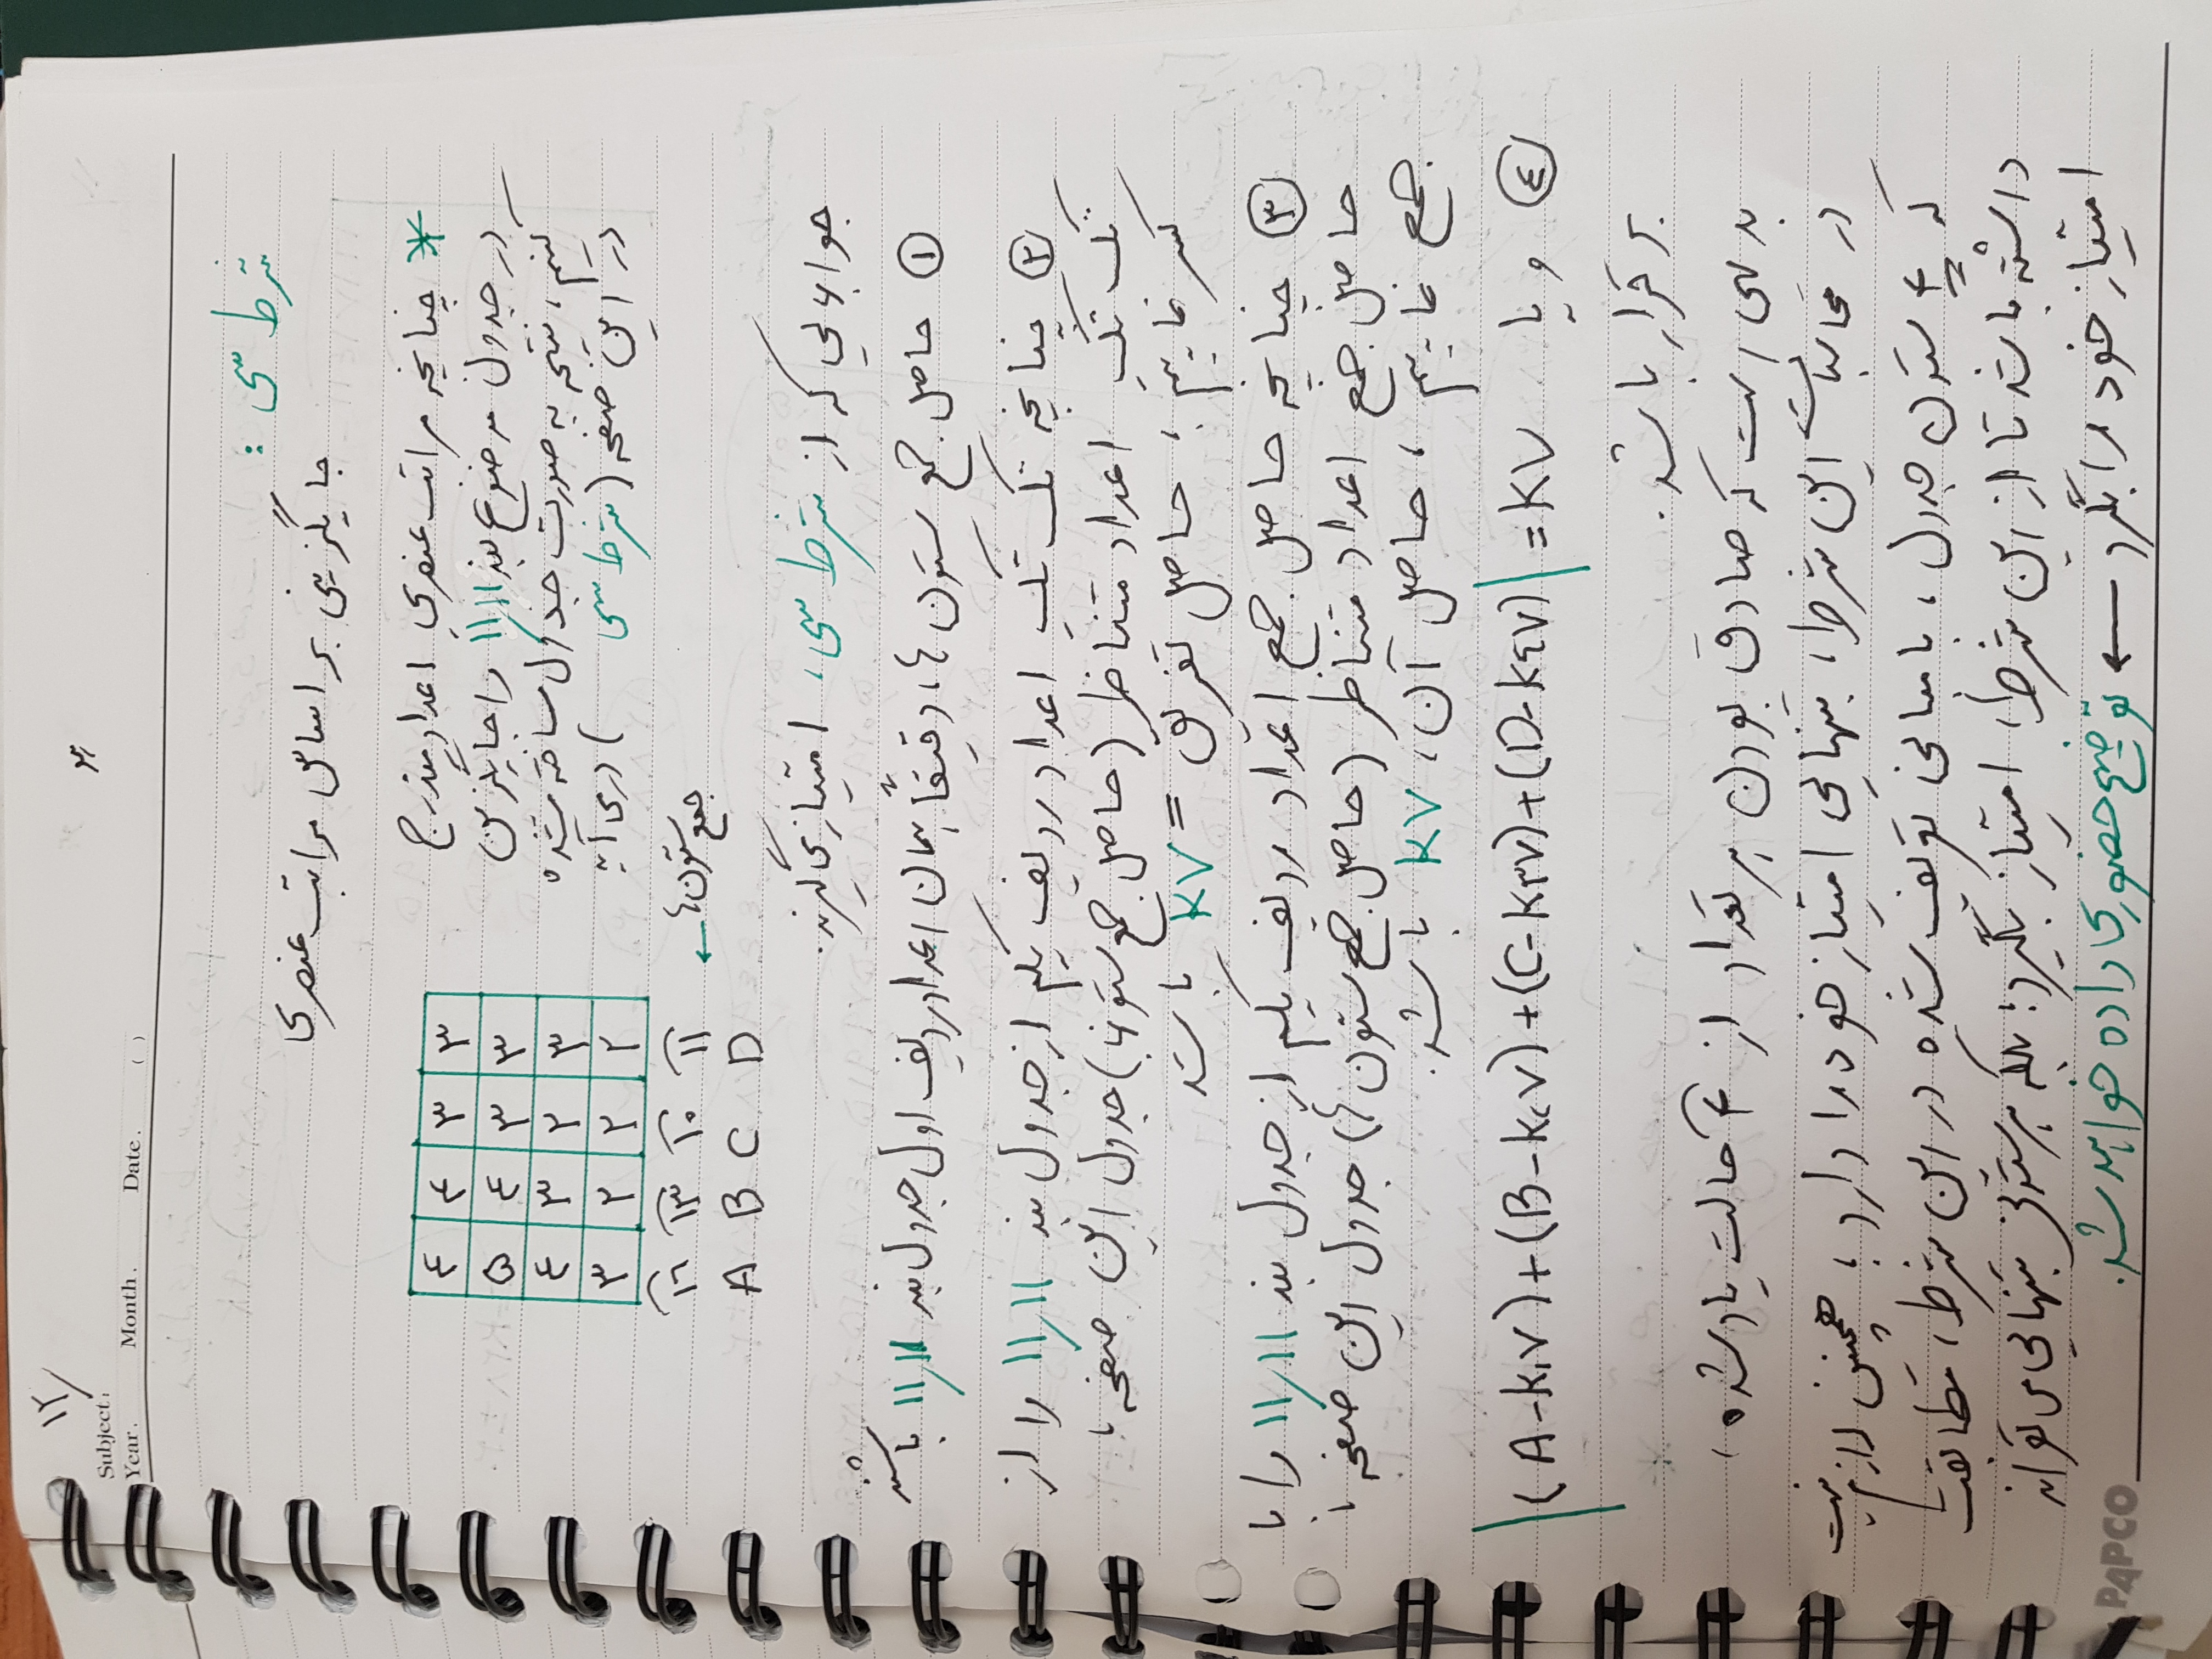 ۱۲/
۳
Subject:
Year. Month. Date. ( )
شرط سی :
جایگزینی بر اساس مراتب عنصری
* چنانچه مراتب عنصریِ اعداد مندرج
در جدول موضوع بند ۱۱/۱۱ را جایگزین
کنیم، نتیجه به صورت جدول ساخته شده
در این صفحه (شرط سی ) درمی‌آید
۴ ۴ ۳ ۳
۵ ۴ ۳ ۳
۴ ۳ ۲ ۳
۳ ۲ ۲ ۲
۱۶ ۱۳ ۱۰ ۱۱ ← جمع ستون‌ها
A B C D
جوابهایی که از شرط سی، امتیاز می‌گیرند.
① حاصل جمع ستون‌ها، دقیقاً همان اعداد ردیف اول جدول بند ۱۱/۱۱ باشند
② چنانچه تک تکِ اعداد ردیف یکم از جدول بند ۱۱/۱۱ را از
تک تکِ اعداد متناظر (حاصل جمع ستونها) جدول این صفحه،
کسر نماییم؛ حاصل تفریق = K۷ باشد
③ چنانچه حاصل جمع اعداد ردیف یکم از جدول بند ۱۱/۱۱ را با
حاصل جمع اعداد متناظر (حاصل جمع ستون‌ها) جدول این صفحه،
جمع نماییم، حاصل آن، K۷ باشد.
④ و یا |(A-K۱۷)+(B-K۲۷)+(C-K۳۷)+(D-K۴۷)| = K۷
برقرار باشد.
بدیهی است که صادق بودن هر تعداد از ۴ حالت یاد شده،
در محاسبات این شرط، بتنهایی امتیاز خود را دارد؛ همچنین لازم نیست
که ۴ ستون جدول، با مبانی تعریف شده در این شرط، مطابقت
داشته باشد تا از این شرط، امتیاز بگیرد؛ بلکه هر ستونی بتنهایی می‌تواند
امتیاز خود را بگیرد ← توضیح حضوری داده خواهد شد.
PAPCO